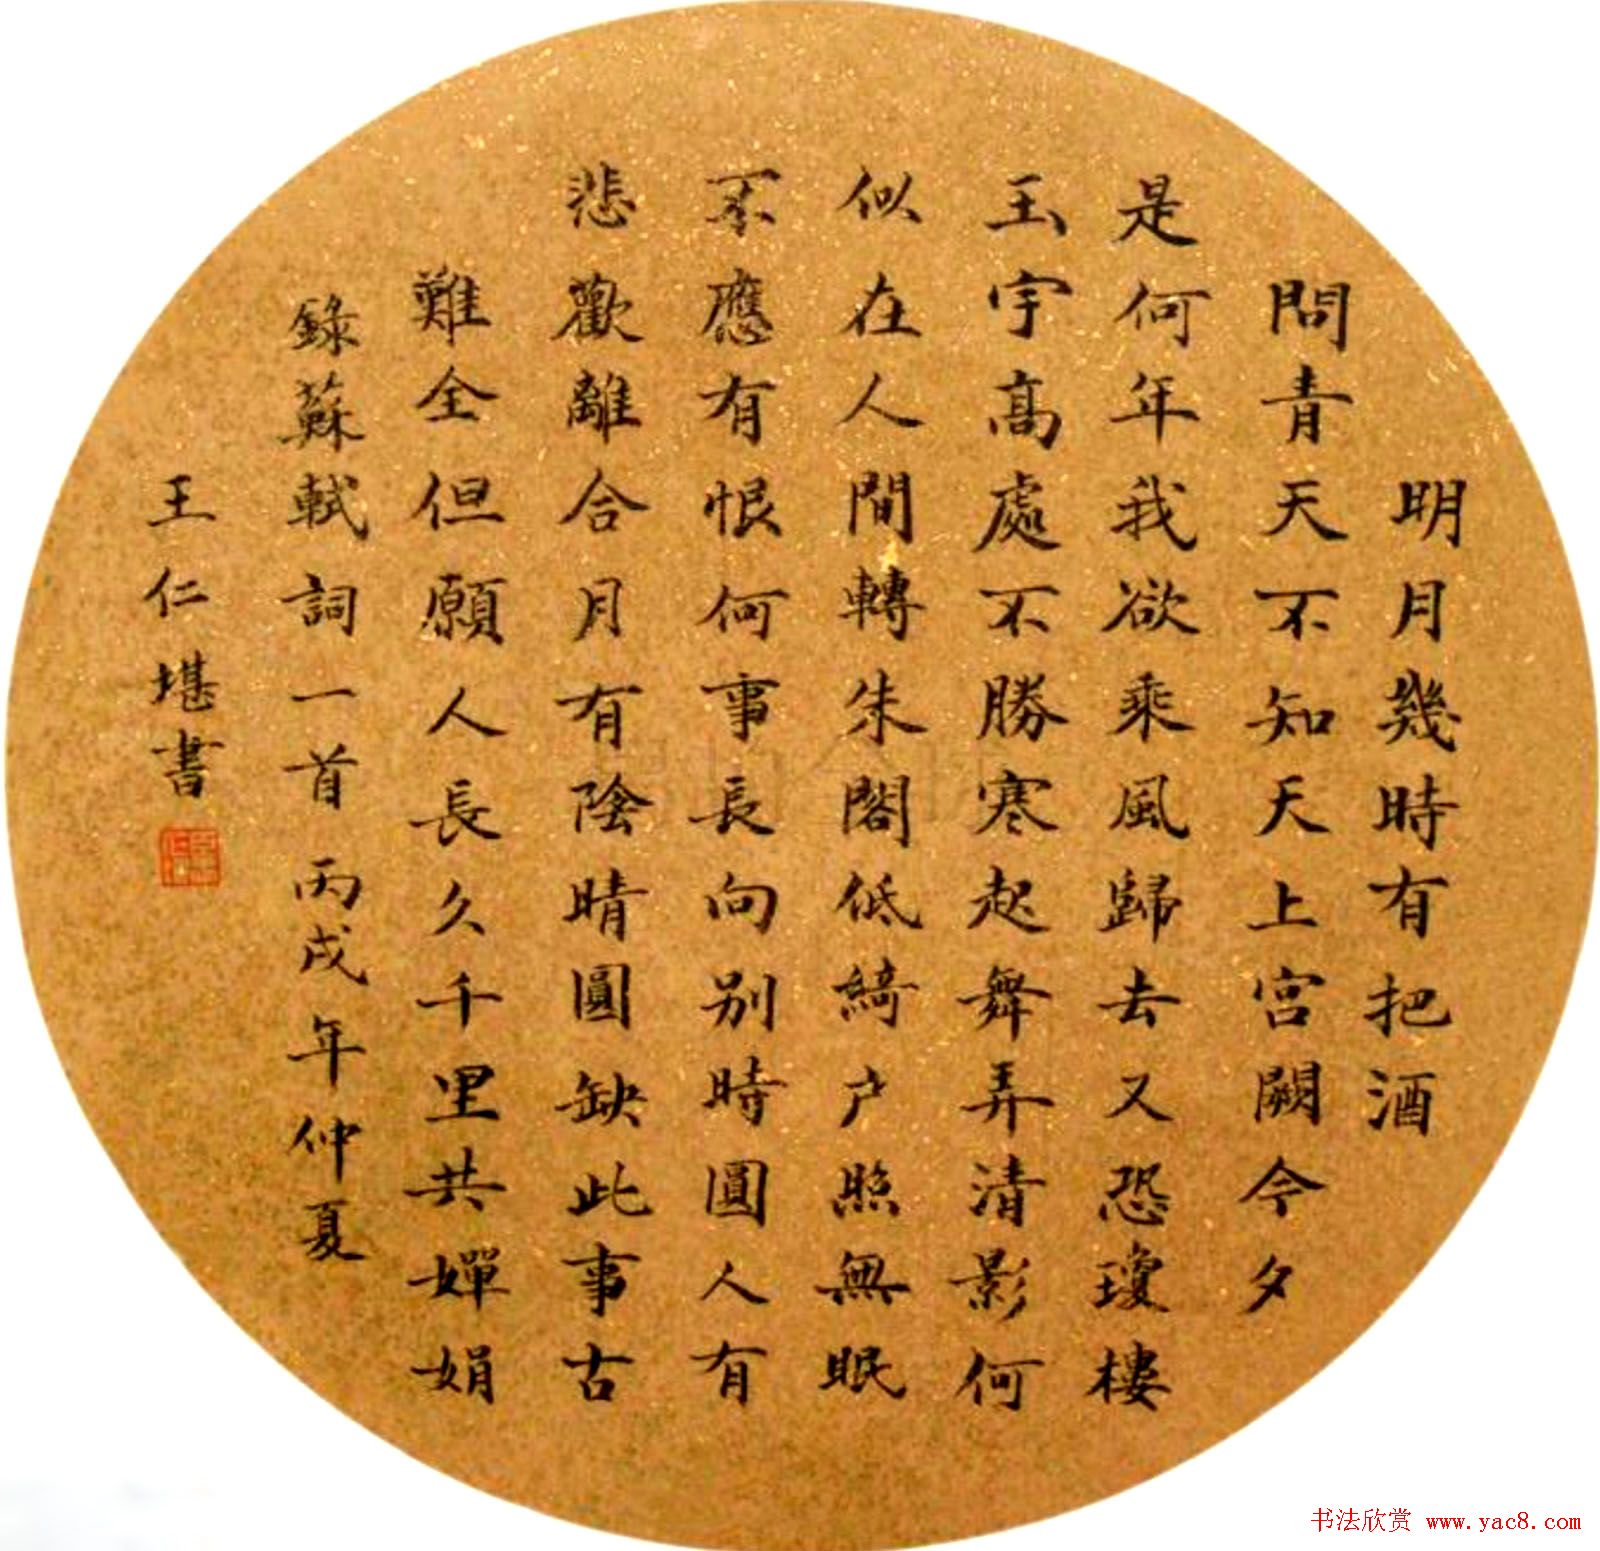 明月幾時有把酒
問青天不知天上宮闕今夕
是何年我欲乘風歸去又恐瓊樓
玉宇高處不勝寒起舞弄清影何
似在人間轉朱閣低綺户照無眠
不應有恨何事長向别時圓人有
悲歡離合月有陰晴圓缺此事古
難全但願人長久千里共嬋娟
錄蘇軾詞一首丙戌年仲夏
王仁堪書
书法欣赏 www.yac8.com